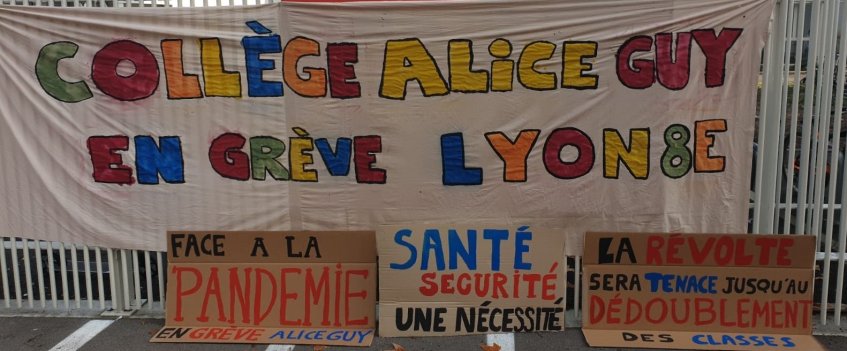 COLLÈGE ALiCE GUY
EN GRÈVE LYON 8E
FACE A LA
PANDEMIE
EN GRÈVE ALICE GUY
SANTÉ
SECURITÉ
UNE NÉCESSITÉ
LA RÉVOLTE
SERA TENACE JUSQU'AU
DÉDOUBLEMENT
DES CLASSES